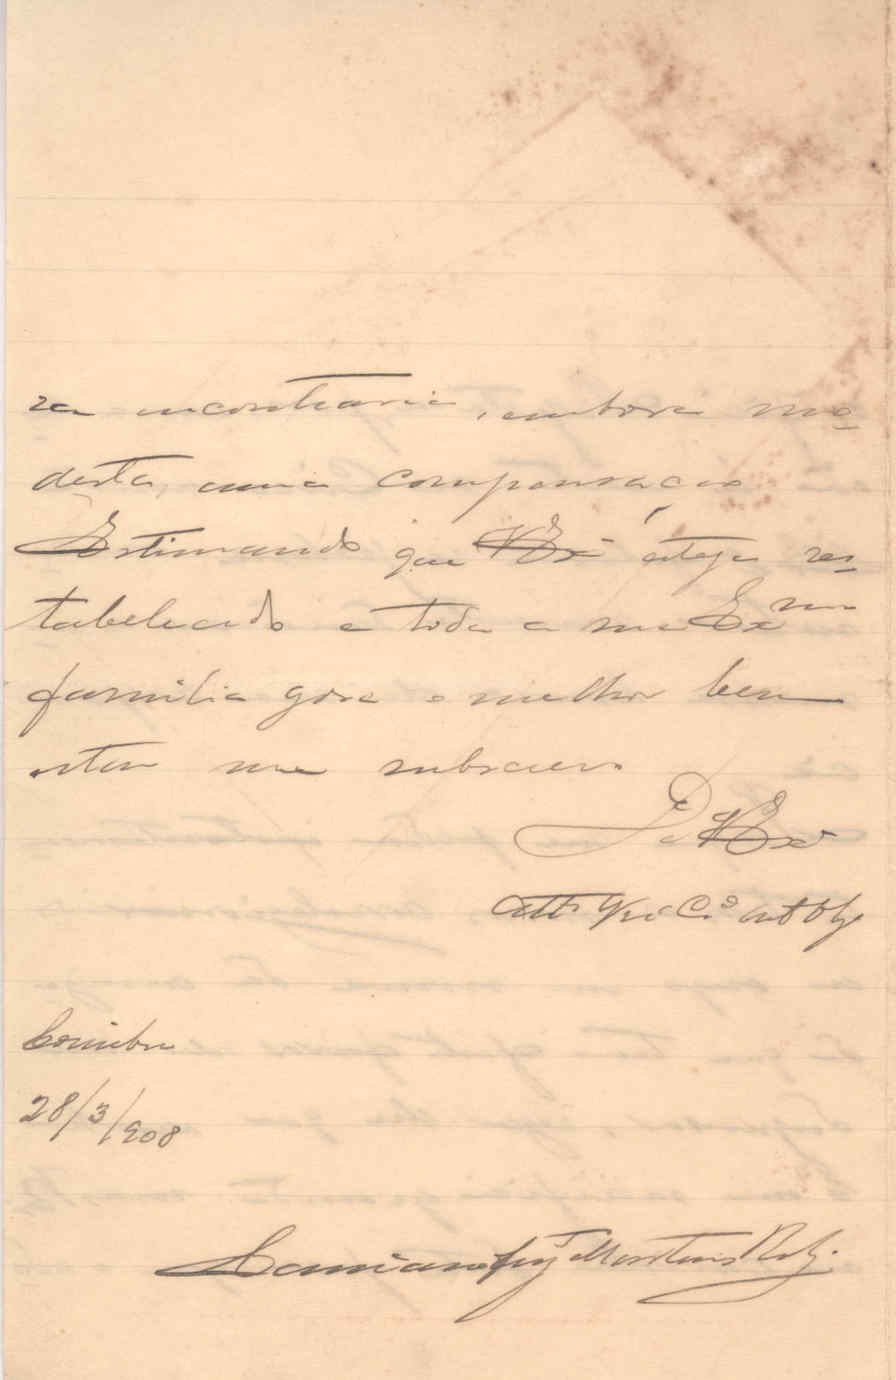 ra encontraria, embora mo-
desta, uma compensação
Estimando que V Exª esteja res-
tabelecido e toda a sua Exma
familia gose o melhor bem
estar me subscrevo
De V Exª
Attº Vor Cº
Coimbra
28/3/908
Martins